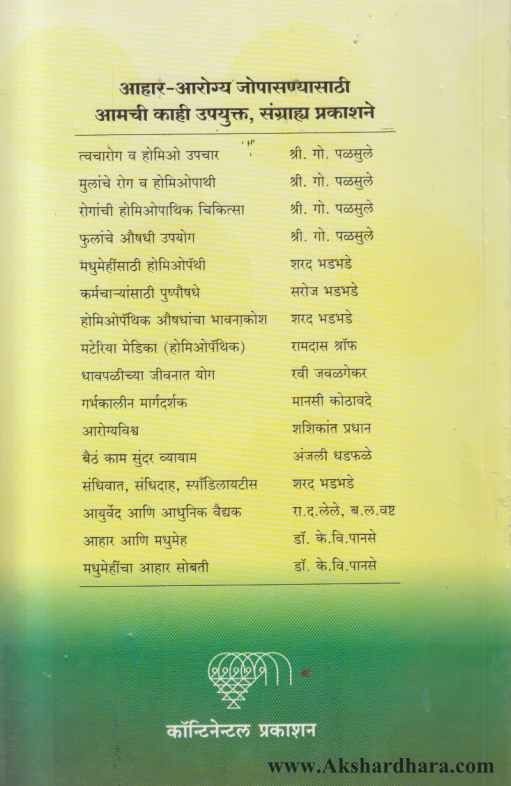 आहार-आरोग्य जोपासण्यासाठी
आमची काही उपयुक्त, संग्राह्य प्रकाशने
त्वचारोग व होमिओ उपचार श्री. गो. पळसुले
मुलांचे रोग व होमिओपाथी श्री. गो. पळसुले
रोगांची होमिओपाथिक चिकित्सा श्री. गो. पळसुले
फुलांचे औषधी उपयोग श्री. गो. पळसुले
मधुमेहींसाठी होमिओपॅथी शरद भडभडे
कर्मचाऱ्यांसाठी पुष्पौषधे सरोज भडभडे
होमिओपॅथिक औषधांचा भावनाकोश शरद भडभडे
मटेरिया मेडिका (होमिओपॅथिक) रामदास श्रॉफ
धावपळीच्या जीवनात योग रवी जवळगेकर
गर्भकालीन मार्गदर्शक मानसी कोठावदे
आरोग्यविश्व शशिकांत प्रधान
बैठं काम सुंदर व्यायाम अंजली धडफळे
संधिवात, संधिदाह, स्पाँडिलायटीस शरद भडभडे
आयुर्वेद आणि आधुनिक वैद्यक रा.द.लेले, ब.ल.वष्ट
आहार आणि मधुमेह डॉ. के.वि.पानसे
मधुमेहींचा आहार सोबती डॉ. के.वि.पानसे
कॉन्टिनेन्टल प्रकाशन
www.Akshardhara.com